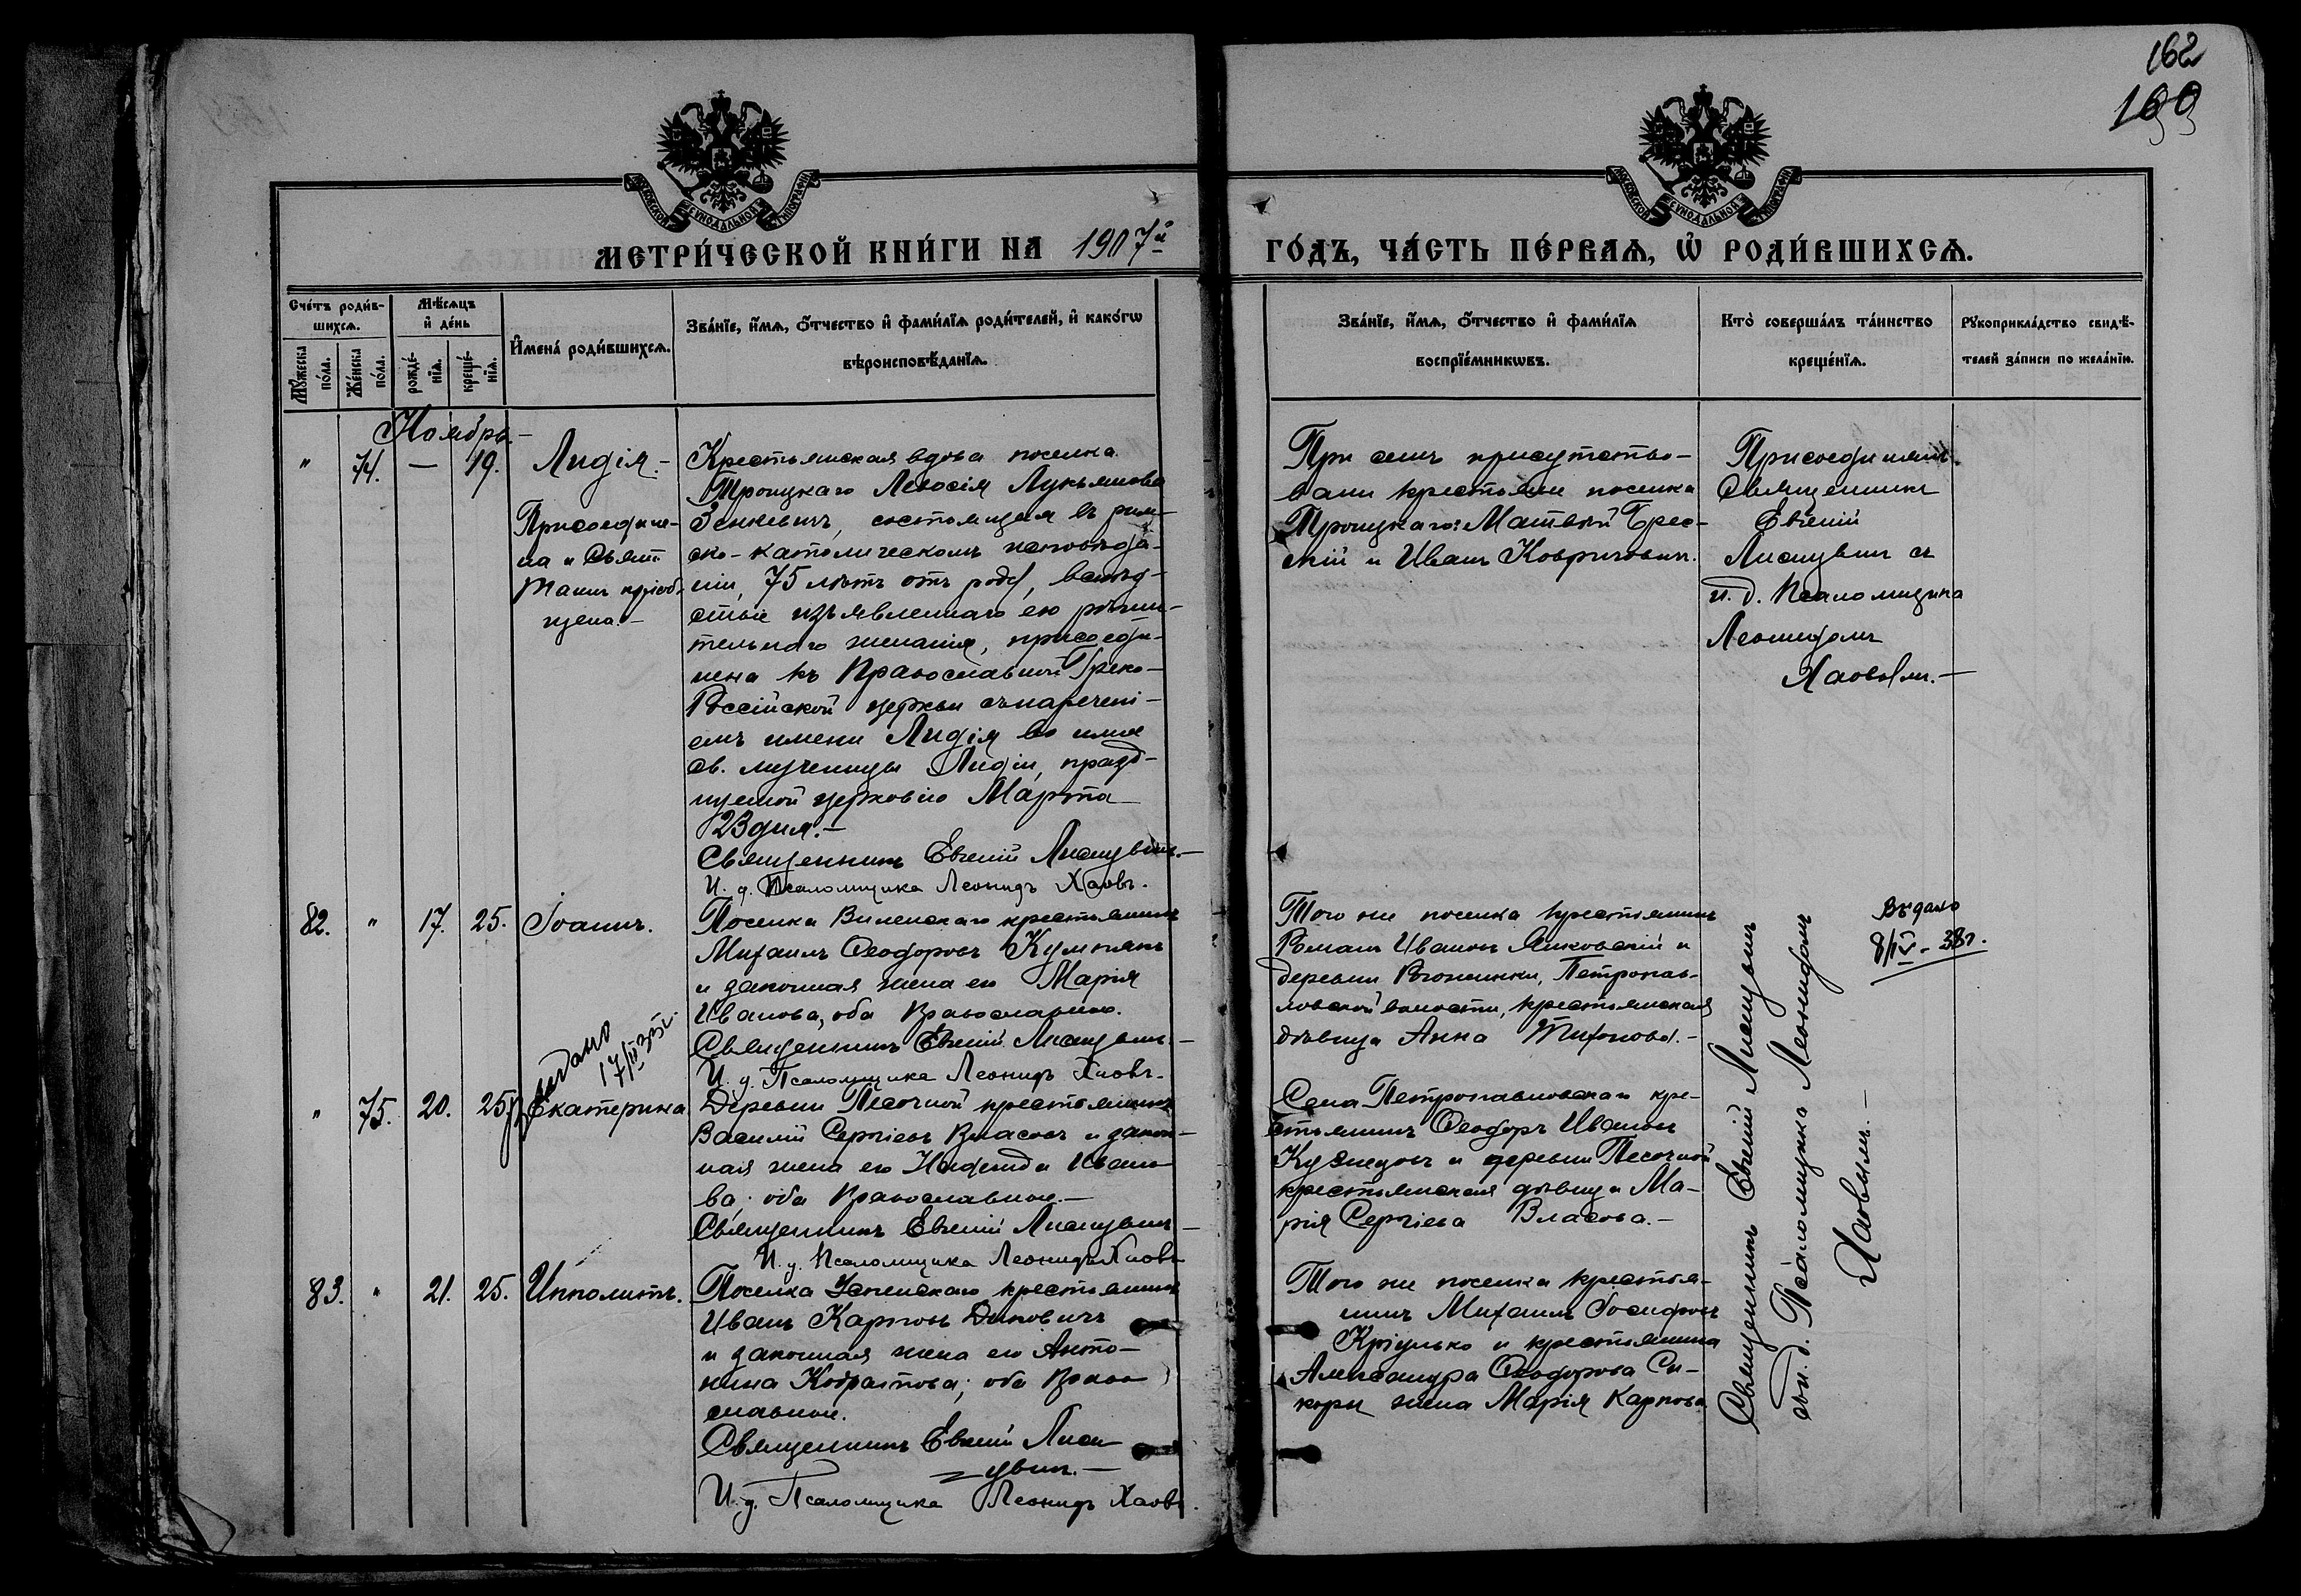 162
160
МОСКОВСКОЙ СѴНОДАЛЬНОЙ ТИПОГРАФІИ
МОСКОВСКОЙ СѴНОДАЛЬНОЙ ТИПОГРАФІИ
МЕТРИ́ЧЕСКОЙ КНИ́ГИ НА 1907й
ГО́ДЪ, ЧА́СТЬ ПЕ́РВАѦ, Ѡ҆ РОДИ́ВШИХСѦ.
Сче́тъ роди́в-
шихсѧ.
Мꙋ́жеска по́ла.
Же́нска по́ла.
Мѣ́сѧцъ
и҆ де́нь
рожде́-
нїѧ.
креще́-
нїѧ.
И҆мена̀ роди́вшихсѧ.
Зва́нїе, и҆́мѧ, ѻ҆́тчество и҆ фами́лїѧ роди́телей, и҆ како́гѡ
вѣроисповѣ́данїѧ.
Зва́нїе, и҆́мѧ, ѻ҆́тчество и҆ фами́лїѧ
воспрїе́мникѡвъ.
Кто̀ соверша́лъ та́инство
креще́нїѧ.
Рꙋкоприкла́дство свидѣ́-
телей за́писи по жела́нїю.
Ноябрь.-
" 74. — 19. Лидія.-
Присоедине-
на и Свят.
Таинъ пріоб-
щена.-
Крестьянская вдова поселка
Троицкаго Левосія Лукьянова
Зенкевичъ, состоящая въ рим-
ско-католическомъ исповѣда-
ніи, 75 лѣтъ отъ роду, вслѣд-
ствіе изъявленнаго ею рѣши-
тельнаго желанія, присоеди-
нена къ Православной Греко-
Россійской церкви съ наречені-
емъ имени Лидія во имя
св. мученицы Лидіи, празд-
нуемой церковію Марта
23 дня.-
Священникъ Евгеній Лисицынъ.-
И. д. Псаломщика Леонидъ Хаовъ.
При семъ присутство-
вали крестьяне поселка
Троицкаго: Матвѣй Брес-
скій и Иванъ Ковриговичъ.
Присоединялъ
Священникъ
Евгеній
Лисицынъ съ
и. д. Псаломщика
Леонидомъ
Хаовымъ.-
82. " 17. 25. Іоаннъ.
Поселка Виленскаго крестьянинъ
Михаилъ Ѳеодоровъ Кумпякъ
и законная жена его Марія
Иванова, оба Православные.
Священникъ Евгеній Лисицынъ.-
И. д. Псаломщика Леонидъ Хаовъ.
Того же поселка крестьянинъ
Романъ Ивановъ Янковскій и
деревни Рогожинки, Петропав-
ловской волости, крестьянская
дѣвица Анна Тихонова.-
Выдано
8/IV - 38г.
Выдано
17/II 35г.
" 75. 20. 25. Екатерина
Деревни Песочной крестьянинъ
Василій Сергіевъ Власовъ и закон-
ная жена его Надежда Ивано-
ва; оба Православные.-
Священникъ Евгеній Лисицынъ-
И. д. Псаломщика Леонидъ Хаовъ
Села Петропавловскаго кре-
стьянинъ Ѳеодоръ Ивановъ
Кузнецовъ и деревни Песочной
крестьянская дѣвица Ма-
рія Сергіева Власова.-
83. " 21. 25. Ипполитъ.
Поселка Успенскаго крестьянинъ
Иванъ Карповъ Диковичъ
и законная жена его Анто-
нина Кодратова; оба Право-
славные.
Священникъ Евгеній Лиси-
цынъ.-
И. д. Псаломщика Леонидъ Хаовъ.
Того же поселка крестья-
нинъ Михаилъ Іосифовъ
и крестьянина
Александра Ѳеодорова Си-
коры жена Марія Карпова
Священникъ Евгеній Лисицынъ
съ и. д. Псаломщика Леонидомъ
Хаовымъ.-